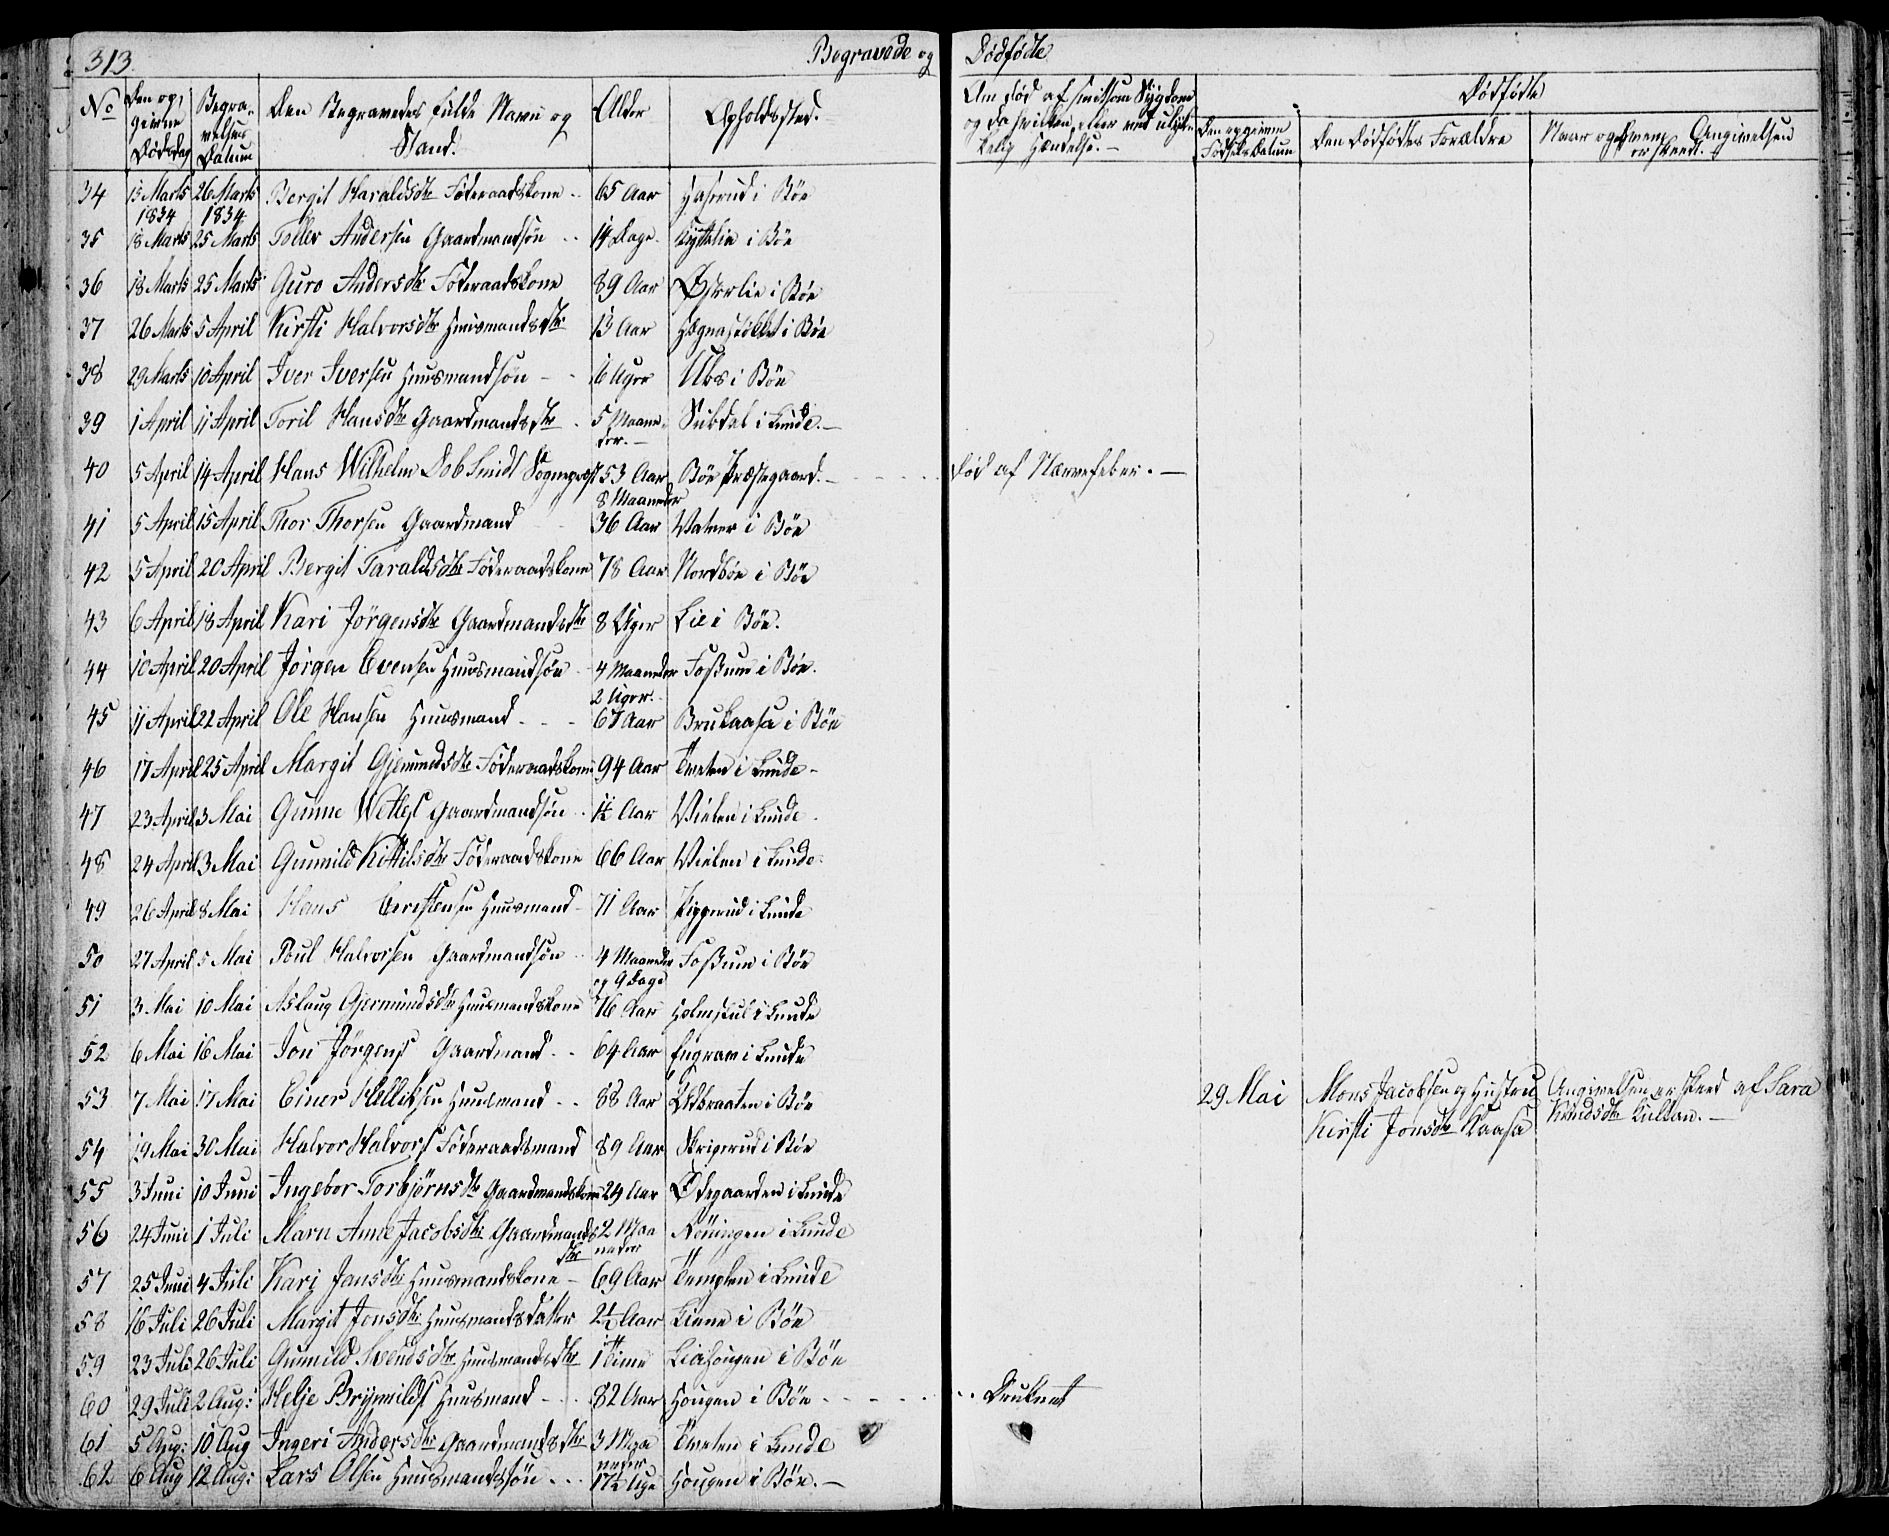 313. Begravede og Dødfødte
No Den opgivne Dødsdag Begravelses Datum Den Begravedes fulde Navn og Stand. Alder Opholdssted. Om død af smitsom Sygdom og da hvilken, eller ved ulykkelig Hændelse. - Dødfødte
Den opgivne Fødsels Datum Den Dødfødtes Forældre Naar og hvem Angivelsen er skeedt.
34 15 Marts 1834 26 Marts 1834 Bergit Haraldsdtr Føderaadskone 65 Aar Haserud i Bøe
35 18 Marts 25 Marts Tollev Andersen Gaardmandsøn 14 Dage i Bøe
36 18 Marts 25 Marts Guro Andersdtr Føderaadskone 89 Aar Østerlie i Bøe
37 26 Marts 5 April Kirsti Halvorsdtr Huusmandsdtr 13 Aar i Bøe
38 29 Marts 10 April Iver Iversen Huusmandsøn - 6 Uger i Bøe
39 1 April 11 April Toril Hansdtr Gaardmandsdtr 5 Maaneder. - i Lunde. -
40 5 April 14 April Hans Wilhelm Dob Smidt Sognepræst 53 Aar 8 Maaneder Bøe Præstegaard. - Død af Nervefeber. -
41 5 April 15 April Thor Thorsen Gaardmand 36 Aar Valner i Bøe
42 5 April 20 April Bergit Taraldsdtr Føderaadskone 78 Aar Nordbøe i Bøe
43 6 April 18 April Kari Jörgensdtr Gaardmandsdtr 8 Uger Lie i Bøe.
44 10 April 20 April Jörgen Evensen Huusmandsøn 4 Maaneder 2 Uger. Foßum i Bøe.
45 11 April 22 April Ole Hansen Huusmand - - 67 Aar Brukaasa i Bøe
46 17 April 25 April Margit Gjermundsdtr Føderaadskone 94 Aar Tveten i Lunde -
47 23 April 3 Mai Gunne Wetles Gaardmandsøn Aar Vielen i Lunde
48 24 April 3 Mai Gunnild Kittilsdtr Føderaadskone 66 Aar Vielen i Lunde
49 26 April 8 Mai Hans Cerstensen Huusmand - 71 Aar i Lunde
50 27 April 5 Mai Poul Halvorsen Gaardmandsøn 4 Maaneder og 9 Dage Foßum i Bøe
51 3 Mai 10 Mai Aslaug Gjermundsdtr Huusmandskone 76 Aar i Lunde
52 6 Mai 16 Mai Jon Jörgens Gaardmand 64 Aar Eugrav i Lunde
53 7 Mai 17 Mai Einer Kittilsen Huusmand 88 Aar Uldbraaten i Bøe
29 Mai Mons Jacobsen og Hustru Kirsti Jonsdtr Kaasa Angivelsen er skeed af Sara Knudsdtr -
54 19 Mai 30 Mai Halvor Halvors Føderaadsmand 89 Aar i Bøe
55 3 Juni 10 Juni Ingebor Torbjørnsdtr Gaardmandskone 24 Aar Ødegaarden i Lunde
56 24 Juni 1 Juli Maru Anne Jacobsdtr Gaardmandsdtr 2 Maaneder Röningen i Lunde
57 25 Juni 4 Juli Kari Jansdtr Huusmandskone - 69 Aar Templen i Lunde
58 16 Juli 26 Juli Margit Jonsdtr Huusmandsdatter 2½ Aar i Bøe
59 23 Juli 26 Juli Gunnild Svendsdtr Huusmandsdtr 1 Time Liahougen i Bøe
60 29 Juli 2 Aug: Helje Brynnilds Huusmand - 82 Aar Hougen i Bøe - - Druknet
61 5 Aug: 10 Aug Ingeri Andersdtr Gaardmandsdtr 3 Maaneder Tveten i Lunde
62 6 Aug 12 Aug: Lars Olsen Huusmandssön 17½ Uge Hougen i Bøe. -